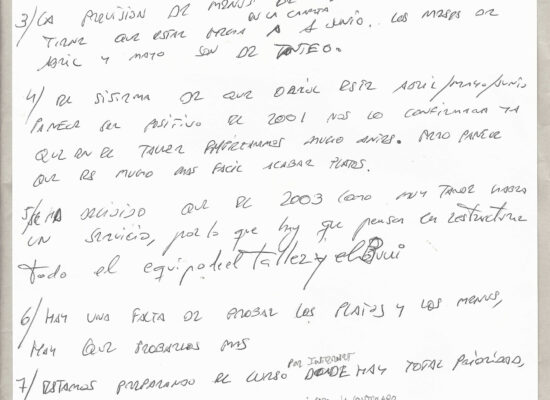 3/ LA PREVISION DE MENUS DE
EN LA CARPETA
TIENE QUE ESTAR HECHA A 1 JUNIO. LOS MESES DE
ABRIL Y MAYO SON DE TANTEO.
4/ EL SISTEMA DE QUE ORIOL ESTE ABRIL/MAYO/JUNIO
PARECE SER POSITIVO EL 2001 NOS LO CONFIRMARA YA
QUE EN EL TALLER MUCHO ANTES. PERO PARECE
QUE ES MUCHO MAS FACIL ACABAR PLATOS.
5/ SE HA DECIDIDO QUE EL 2003 COMO MUY TARDE HABRA
UN SERVICIO, por lo que hay que pensar en restructurar
todo el equipo del Taller y el Bulli
6/ HAY UNA FALTA DE PROBAR LOS PLATOS Y LOS MENUS,
HAY QUE PROBARLOS MAS
POR INTERNET
7/ ESTAMOS PREPARANDO EL CURSO DONDE HAY TOTAL PRIORIDAD,